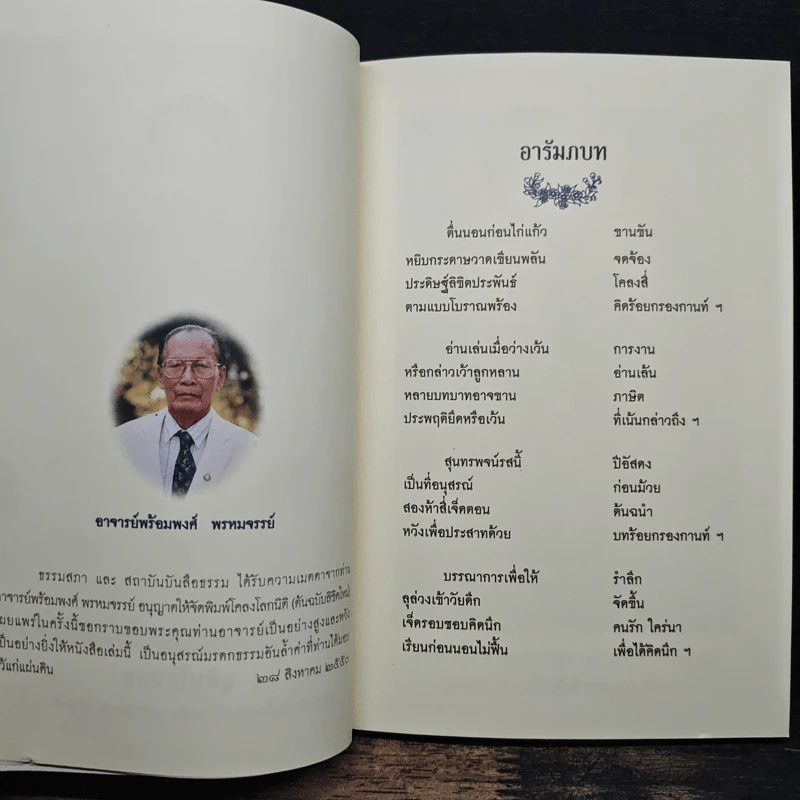 อาจารย์พร้อมพงศ์ พรหมจรรย์
ธรรมสภา และ สถาบันบันลือธรรม ได้รับความเมตตาจากท่าน
อาจารย์พร้อมพงศ์ พรหมจรรย์ อนุญาตให้จัดพิมพ์โคลงโลกนิติ (ต้นฉบับลิขิตใหม่)
เผยแพร่ในครั้งนี้ขอกราบขอบพระคุณท่านอาจารย์เป็นอย่างสูงและหวัง
เป็นอย่างยิ่งให้หนังสือเล่มนี้ เป็นอนุสรณ์มรดกธรรมอันล้ำค่าที่ท่านได้มอบ
ไว้แก่แผ่นดิน ๒๘ สิงหาคม ๒๕๕๐
อารัมภบท
ตื่นนอนก่อนไก่แก้ว ขานขัน
หยิบกระดาษวาดเขียนพลัน จดจ้อง
ประดิษฐ์ลิขิตประพันธ์ โคลงสี่
ตามแบบโบราณพร้อง คิดร้อยกรองกานท์ ฯ
อ่านเล่นเมื่อว่างเว้น การงาน
หรือกล่าวเว้าลูกหลาน อ่านเล้น
หลายบทบาทอาจขาน ภาษิต
ประพฤติยึดหรือเว้น ที่เน้นกล่าวถึง ฯ
สุนทรพจน์รสนี้ ปีอัสดง
เป็นที่อนุสรณ์ ก่อนม้วย
สองห้าสี่เจ็ดตอน ต้นฉนำ
หวังเพื่อประสาทด้วย บทร้อยกรองกานท์ ฯ
บรรณาการเพื่อให้ รำลึก
ลุล่วงเข้าวัยดึก จัดขึ้น
เจ็ดรอบชอบคิดนึก คนรัก ใคร่นา
เรียนก่อนนอนไม่ฟื้น เพื่อได้คิดนึก ฯ